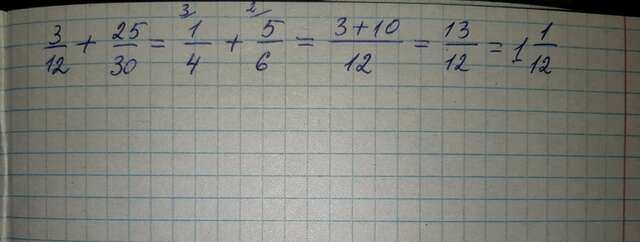 3/12 + 25/30 = 3/ 1/4 + 2/ 5/6 = 3+10/12 = 13/12 = 1 1/12